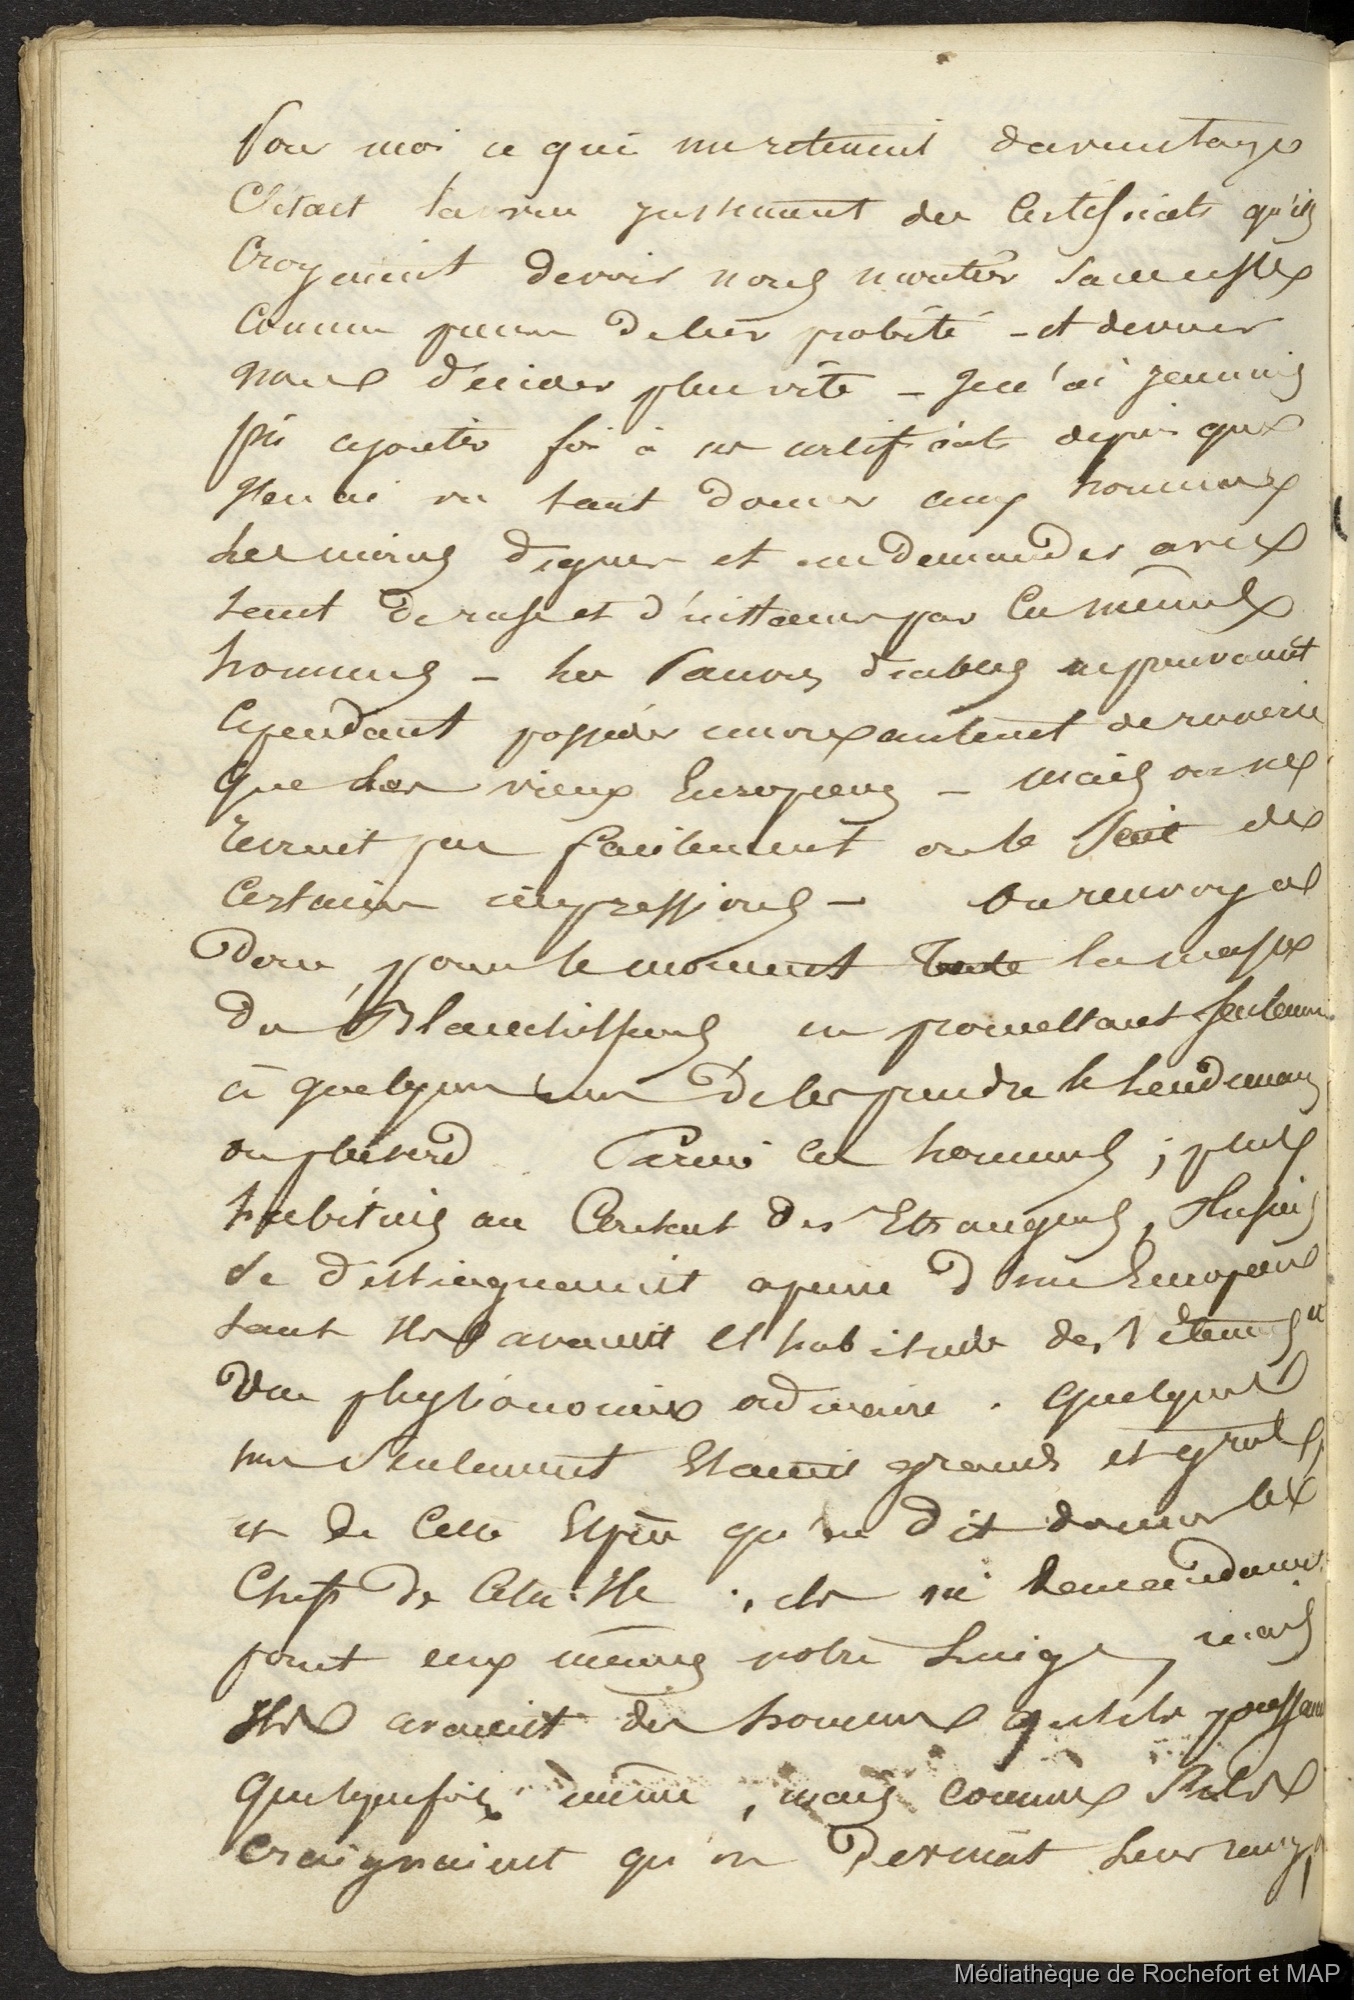 Pour moi ce qui me retenait davantage
C'était la vue justement des Certificats qu'ils
Croyaient devoir nous montrer sans cesse
Comme preuve de leur probité - et devoir
nous décider plus vite - Je n'ai jamais
pu ajouter foi à ces certificats depuis que
J'en ai vu tant donner aux hommes
les moins dignes et en demander avec
tant de ruse et d'instance par les mêmes
hommes - les Pauvres diables ne pouvaient
Cependant posséder encore autant de rouerie
que les vieux Européens - mais on ne
revient pas facilement on le sait de
Certaines impressions - On renvoya
Donc pour le moment toute la masse
des Blanchisseurs en promettant seulement
à quelques uns de les prendre le lendemain
ou plus tard. Parmi ces hommes, plus
habitués au Contact des Etrangers, Plusieurs
se distinguaient à peine d'un Européen
tant ils avaient l'habitude des vêtements et
Une physionomie ordinaire. quelques
uns seulement Etaient grands et gros,
et de cette Espèce qu'on dit donner les
Chefs de ; ils ne demandaient
point eux mêmes notre linge, mais
Ils avaient des hommes qu'ils poussaient
quelquefois même, mais comme s'ils
craignaient qu'on devinât leur rang,
Médiathèque de Rochefort et MAP